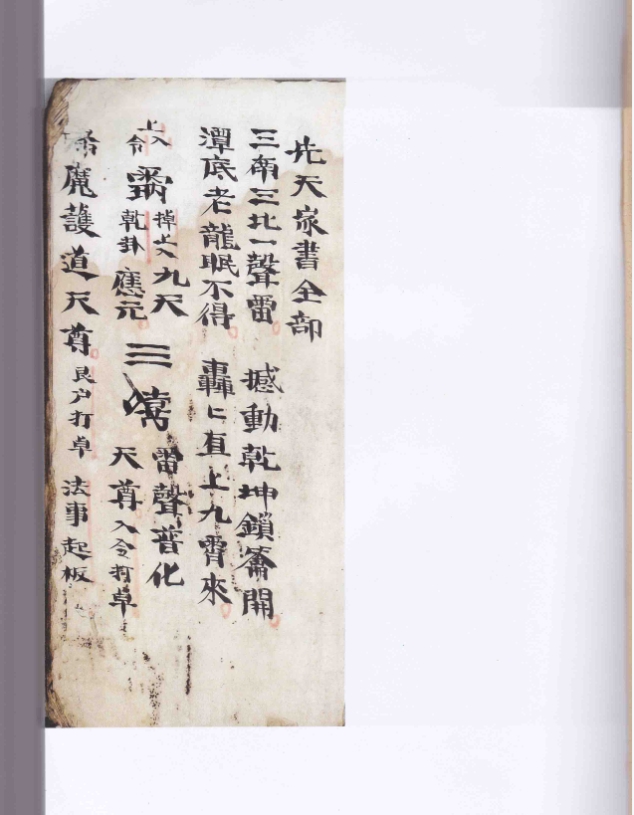 先天家書全部
三南三北一聲雷 撼動乾坤鎖籥開
潭底老龍眠不得 轟〻直上九霄來
掉上文九天 雷聲普化
上入令 乾卦 應元 三 天尊入令打卓
魔護道天尊艮户打卓 法事起板